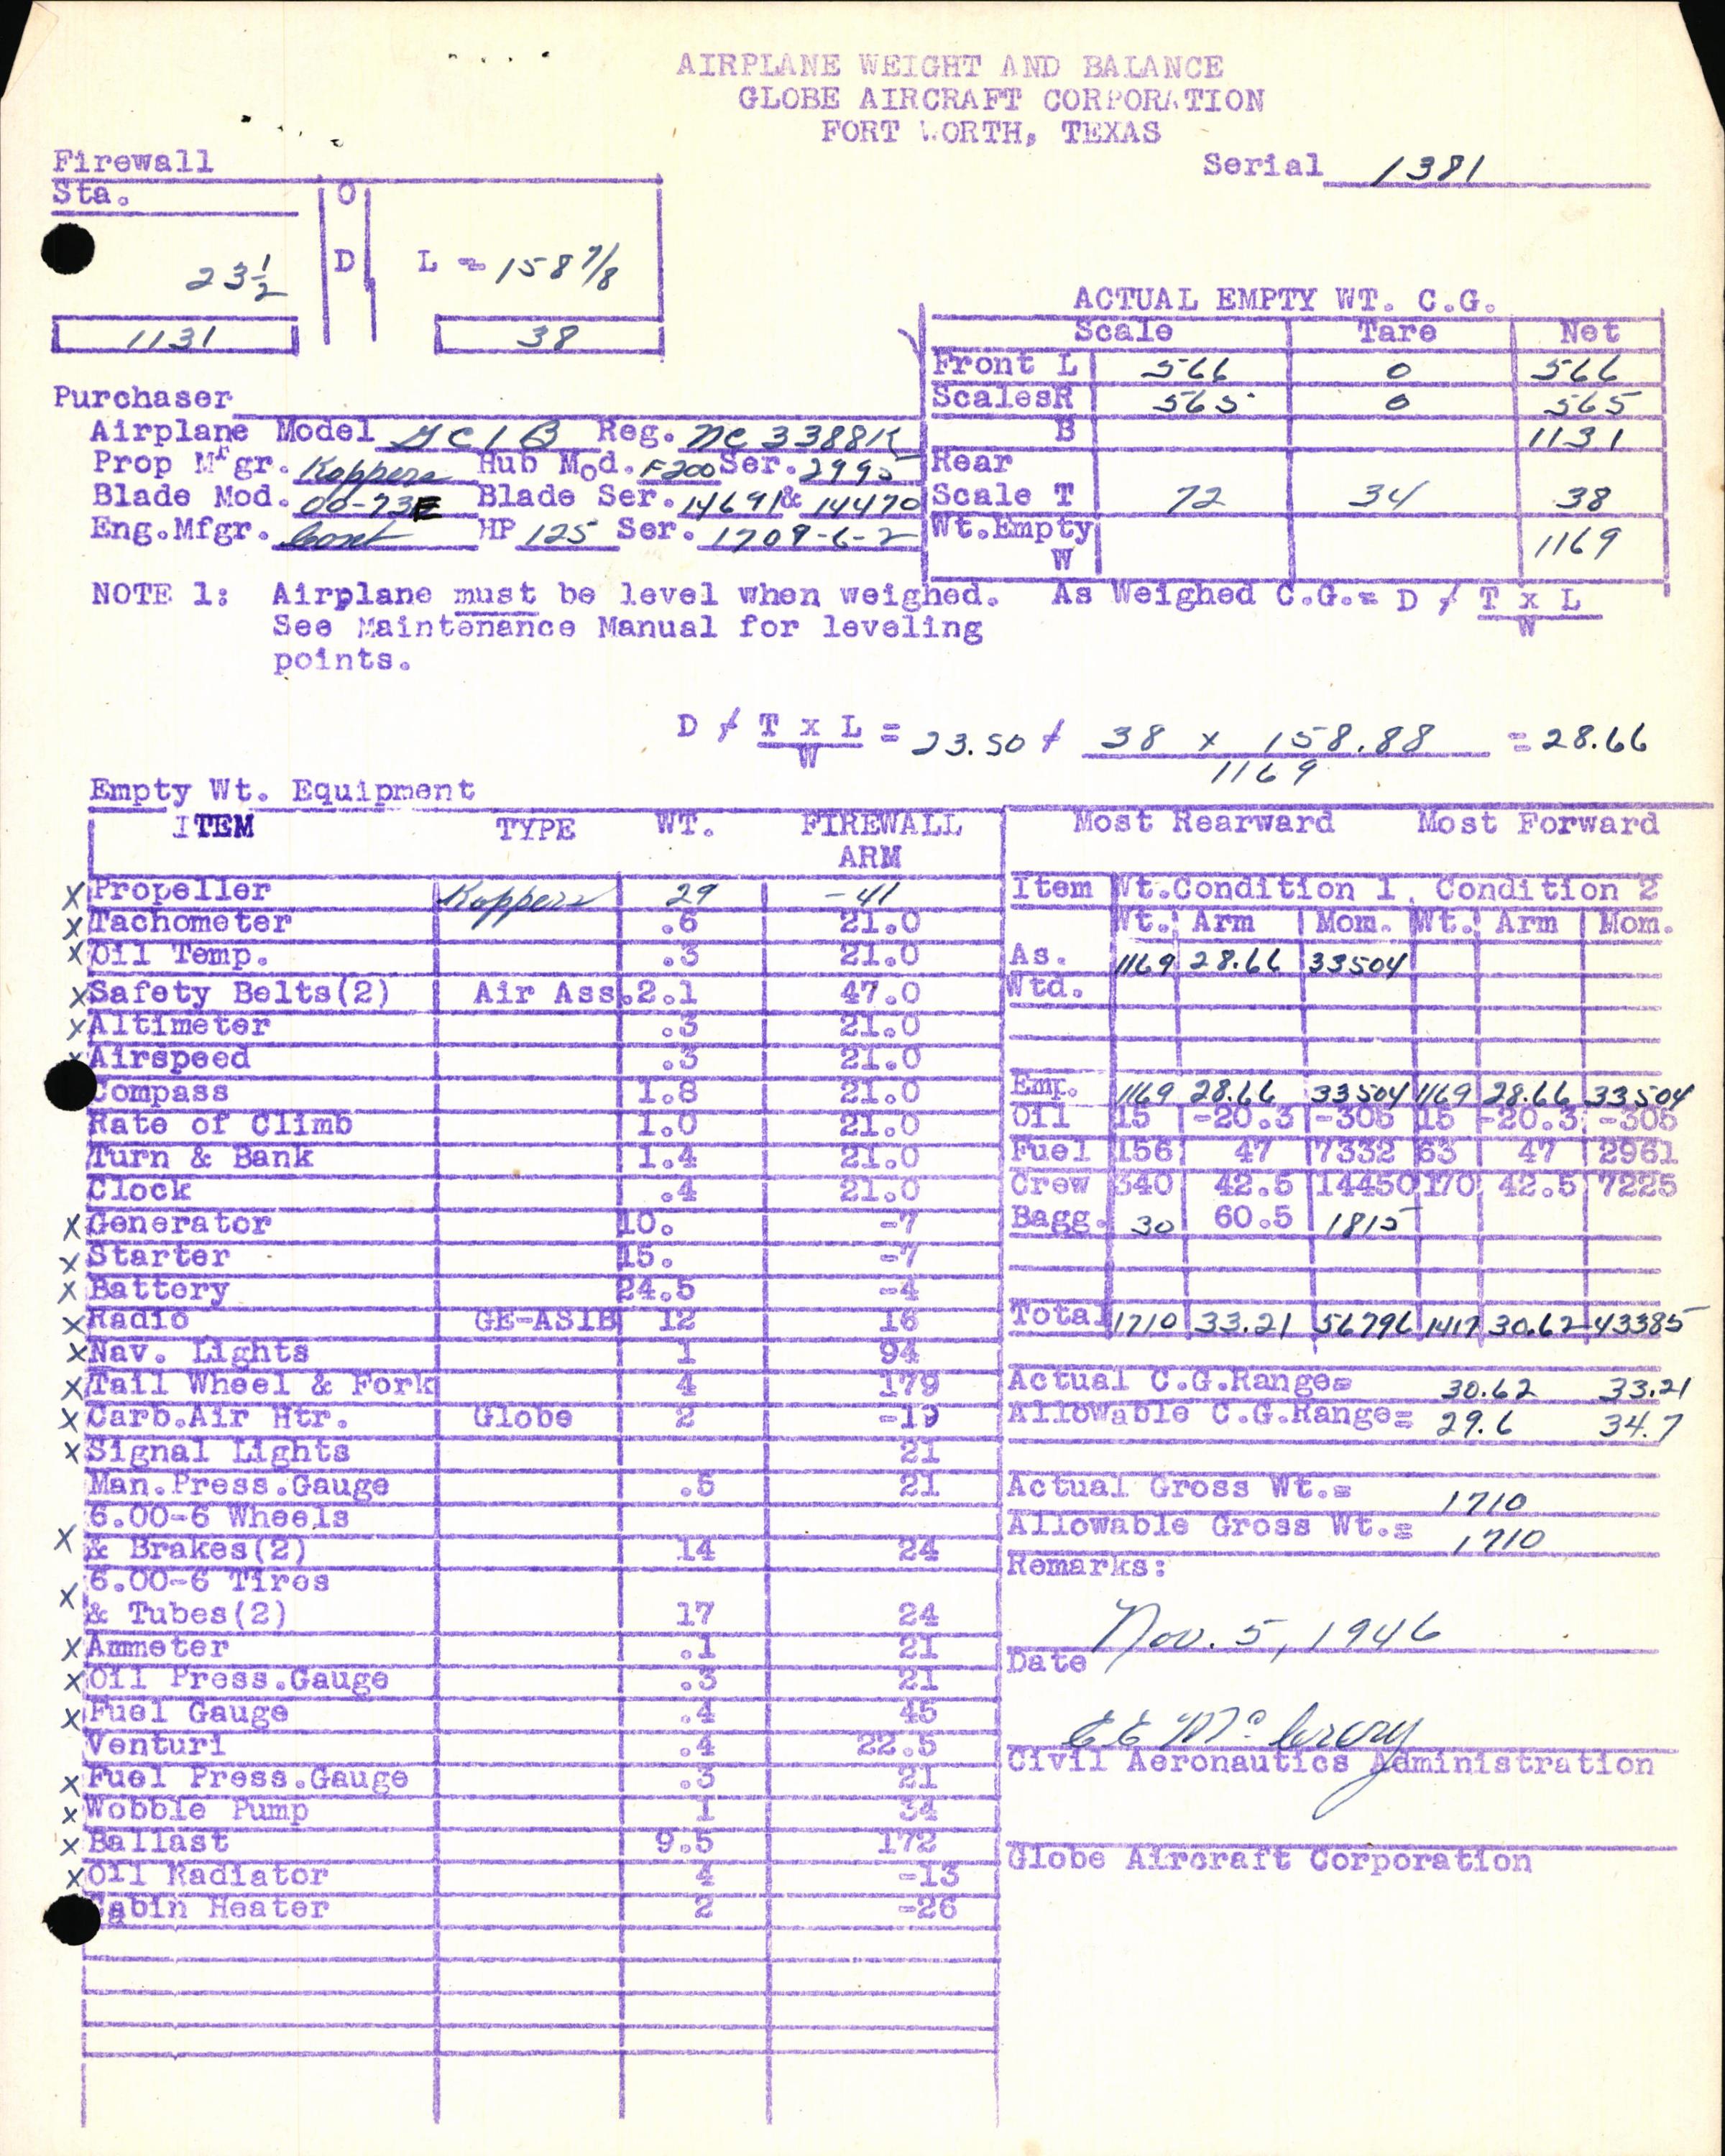 AIRPLANE WEIGHT AND BALANCE
GLOBE AIRCRAFT CORPORATION
FORT WORTH, TEXAS
Serial 1381
Firewall
Sta. O
23½ D L = 158 7/8
1131 38
ACTUAL EMPTY WT. C.G.
Scale Tare Net
Front L 566 0 566
ScalesR 565 0 565
B 1131
Rear
Scale T 72 34 38
Wt.Empty
W 1169
Purchaser
Airplane Model GC1B Reg. NC3388K
Prop Mfgr. Koppers Hub Mod. F200 Ser. 2995
Blade Mod. 00-73E Blade Ser. 14691 & 14470
Eng.Mfgr. Cont HP 125 Ser. 1709-6-2
NOTE 1: Airplane must be level when weighed. As Weighed C.G.= D ≠ T x L
See Maintenance Manual for leveling W
points.
D ≠ T x L = 23.50 ≠ 38 x 158.88 = 28.66
W 1169
Empty Wt. Equipment
ITEM TYPE WT. FIREWALL
ARM
X Propeller Koppers 29 -41
X Tachometer .6 21.0
X Oil Temp. .3 21.0
X Safety Belts(2) Air Ass. 2.1 47.0
X Altimeter .3 21.0
X Airspeed .3 21.0
Compass 1.8 21.0
Rate of Climb 1.0 21.0
Turn & Bank 1.4 21.0
Clock .4 21.0
X Generator 10. -7
X Starter 15. -7
X Battery 24.5 -4
X Radio GE-AS1B 12 16
X Nav. Lights 1 94
X Tail Wheel & Fork 4 179
X Carb.Air Htr. Globe 2 -19
X Signal Lights 21
Man.Press.Gauge .5 21
6.00-6 Wheels
X & Brakes(2) 14 24
6.00-6 Tires
X & Tubes(2) 17 24
X Ammeter .1 21
X Oil Press.Gauge .3 21
X Fuel Gauge .4 45
Venturi .4 22.5
X Fuel Press.Gauge .3 21
X Wobble Pump 1 34
X Ballast 9.5 172
X Oil Radiator 4 -13
Cabin Heater 2 -26
Most Rearward Most Forward
Item Wt.Condition 1 Condition 2
Wt. Arm Mom. Wt. Arm Mom.
As. 1169 28.66 33504
Wtd.
Emp. 1169 28.66 33504 1169 28.66 33504
Oil 15 -20.3 -305 15 -20.3 -305
Fuel 156 47 7332 63 47 2961
Crew 340 42.5 14450 170 42.5 7225
Bagg. 30 60.5 1815
Total 1710 33.21 56796 1417 30.62 43385
Actual C.G.Range= 30.62 33.21
Allowable C.G.Range= 29.6 34.7
Actual Gross Wt.= 1710
Allowable Gross Wt.= 1710
Remarks:
Nov. 5, 1946
Date
Civil Aeronautics Administration
Globe Aircraft Corporation